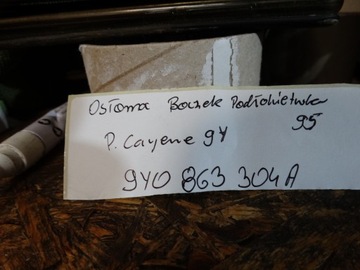 Osłona Boczek Podłokietnika
95
P. Cayene 9Y
9Y0 863 304A